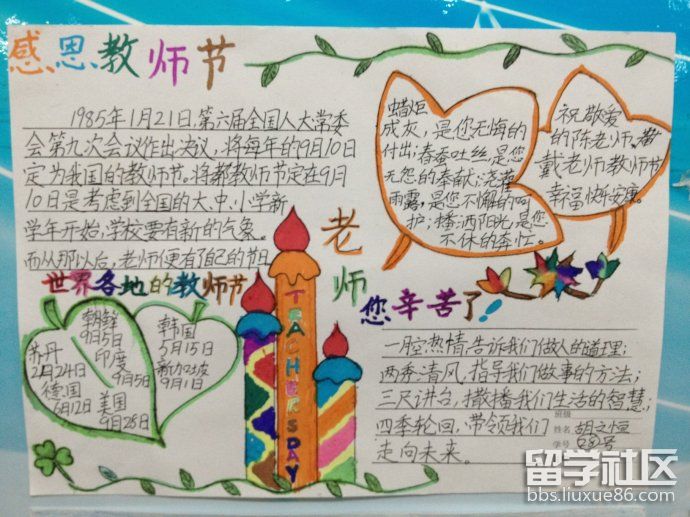 感恩教师节
1985年1月21日,第六届全国人大常委
会第九次会议作出决议,将每年的9月10日
定为我国的教师节。将都教师节定在9月
10日是考虑到全国的大、中、小学新
学年开始,学校要有新的气象。
而从那以后,老师便有了自己的节日
蜡炬
成灰,是您无悔的
付出;春蚕吐丝,是您
无怨的奉献;浇灌
雨露,是您不懈的呵
护;播洒阳光,是您
不休的奔忙。
祝敬爱
的陈老师、
戴老师教师节
幸福快乐安康。
老
师
您辛苦了!
世界各地的教师节
朝鲜
9月5日
印度
9月5日
苏丹
2月24日
德国
6月12日
美国
9月28日
韩国
5月15日
新加坡
9月1日
TEACHERSDAY
一腔热情,告诉我们做人的道理;
两袖清风,指导我们做事的方法;
三尺讲台,撒播我们生活的智慧;
四季轮回,带领我们
走向未来。
班级
姓名 胡文恒
学号
留学社区
bbs.liuxue86.com